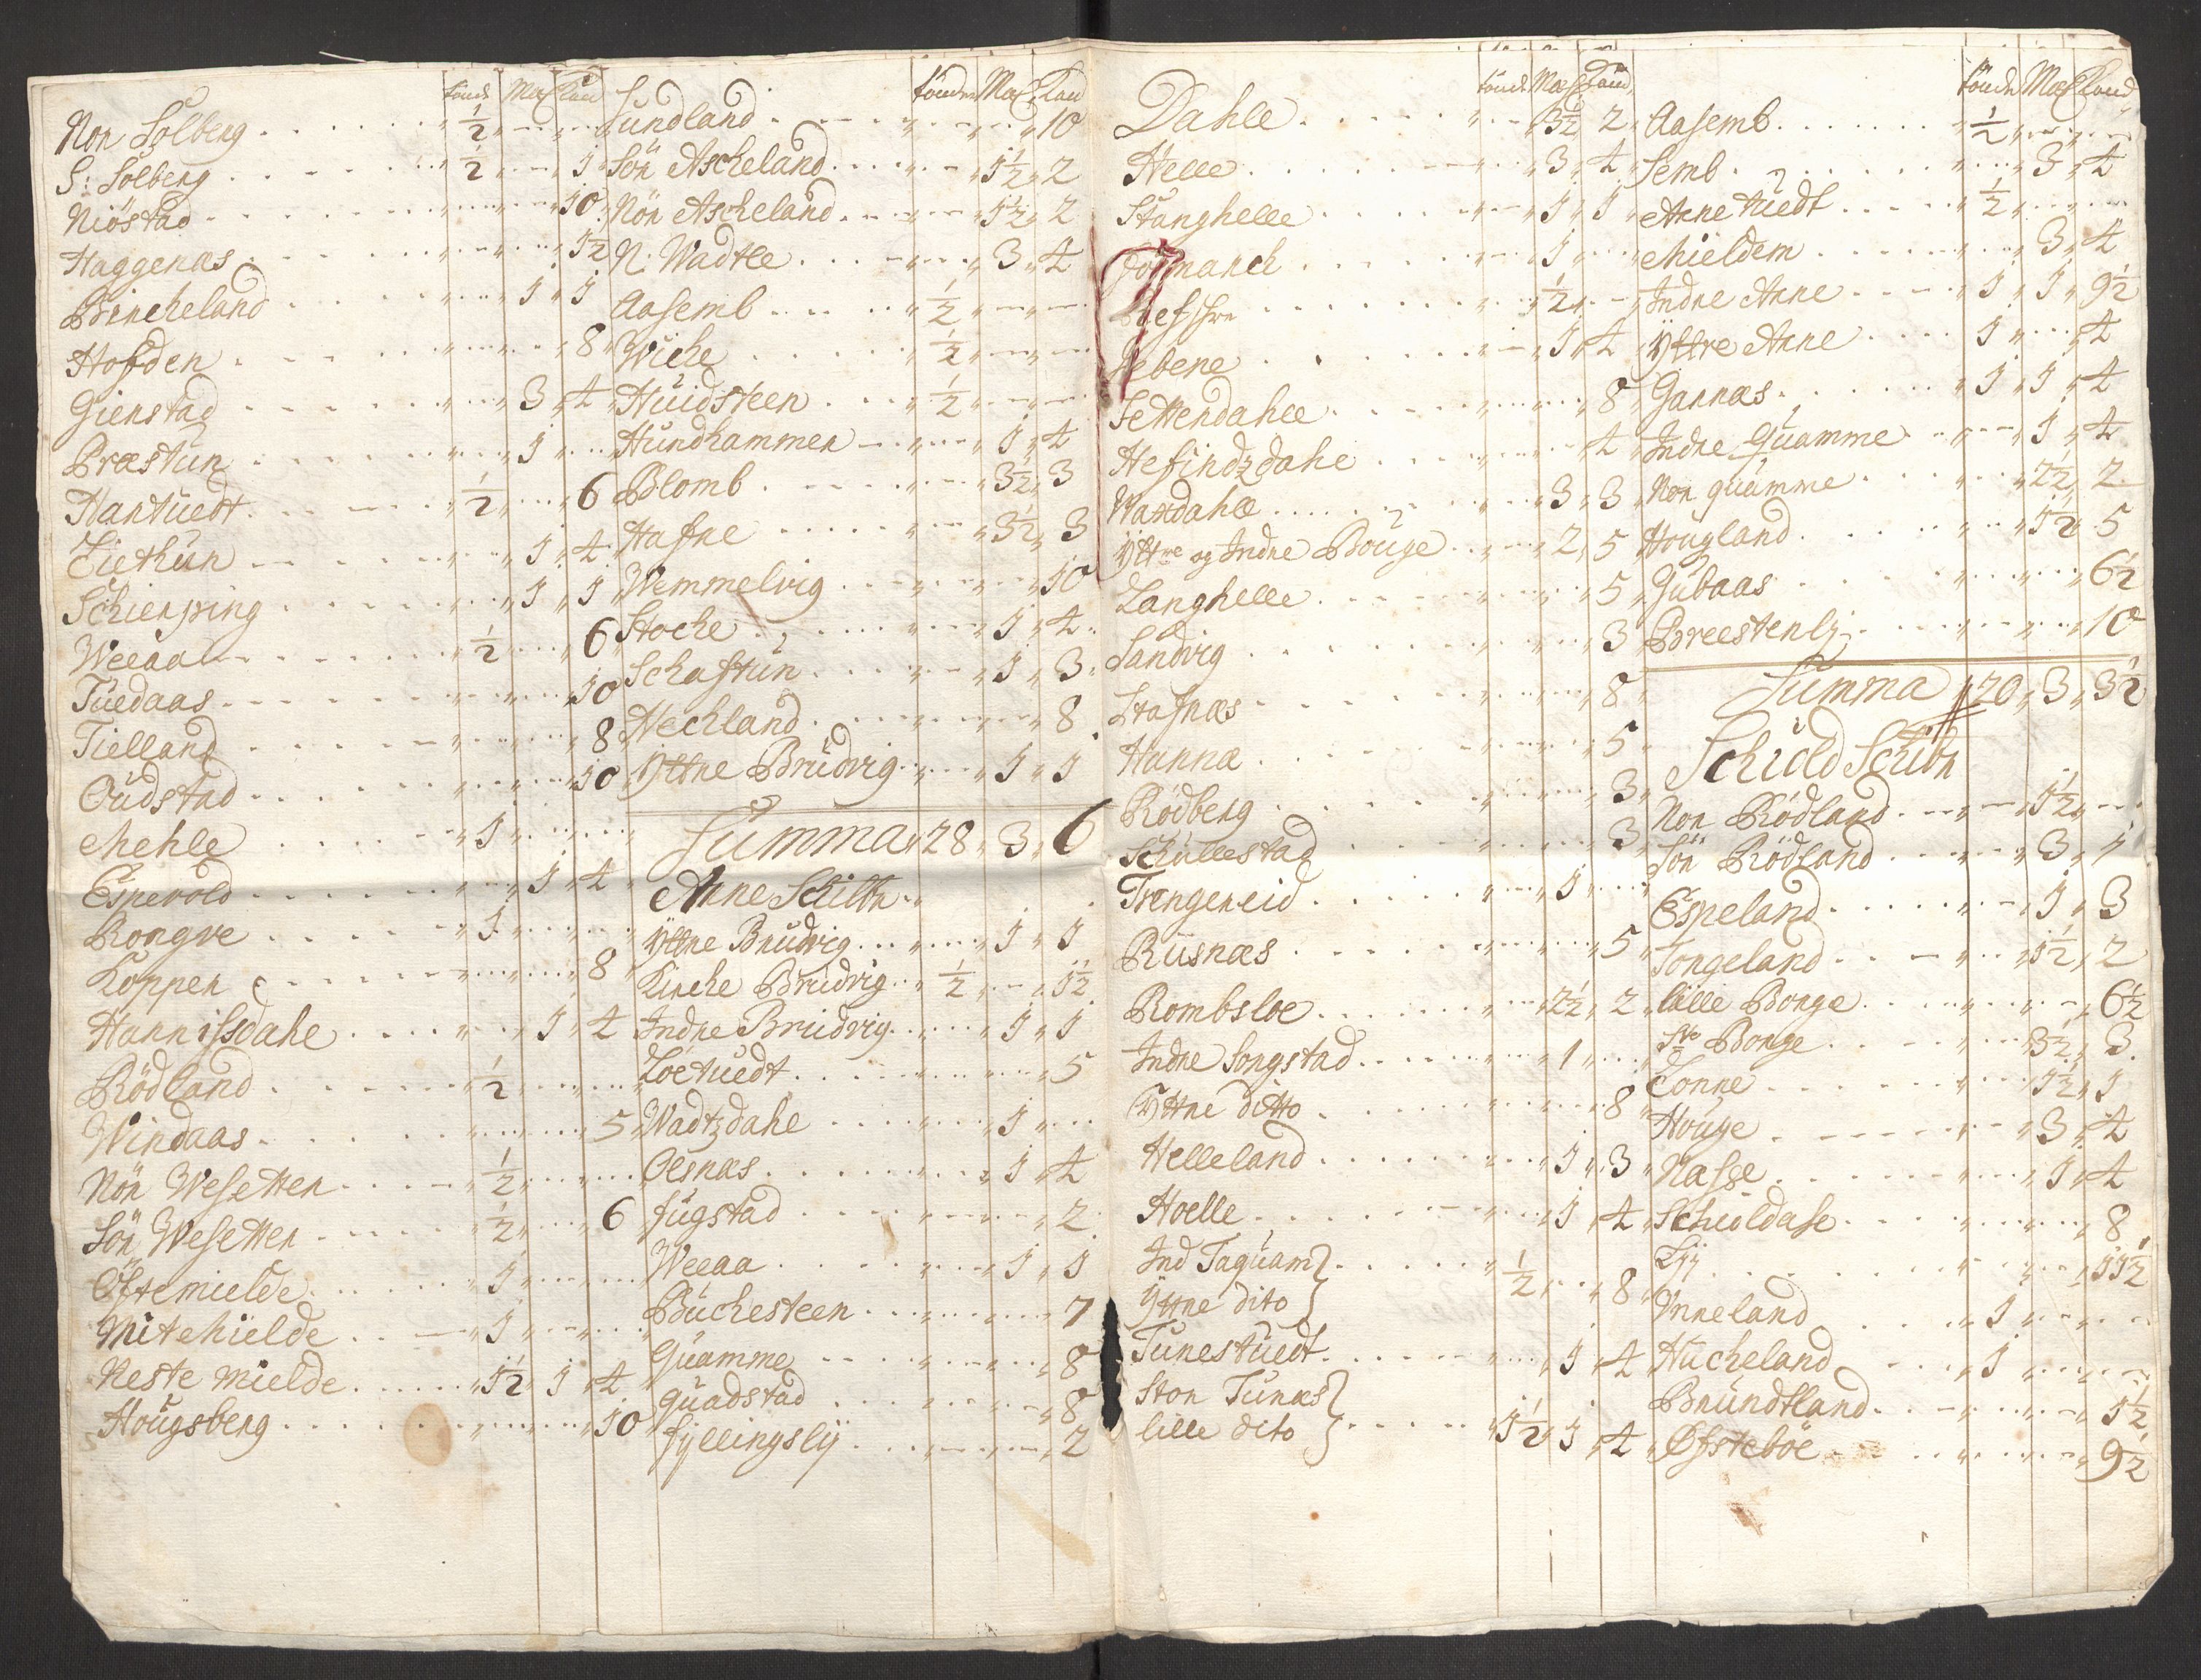 tönde Mæl Kand
Nor Solberg ½
S: Solberg ½ 1
Niöstad 10
Haggenæs 1½
Bircheland 1 1
Hofden 8
Gierstad 3 4
Præstun 1
Hartuedt ½ 6
Tiethun 1 4
Schierping 1 1
Weeaa ½ 6
Tuedaas 10
Tielland 8
Oudstad 10
Mehle 1
Espevold 1 4
Rongve 1
Koppen 8
Hannisdahe 1 4
Rödland ½
Windaas 5
Nör Wesetter ½
Sör Wesetter ½ 6
Öftemielde 1
Mitehielde 1
Neste mielde 1½ 1 4
Hougsberg 10
tönder Mæl Kand
Sundland 10
Sör Ascheland 1½ 2
Nör Ascheland 1½ 2
N. Wadtle 3 4
Aasemb ½
Wiche ½
Huidsteen ½
Hundhammer 1 4
Blomb 3½ 3
Hafne 3½ 3
Wemmelvig 10
Stoche 1 4
Schaftun 1 3
Hechland 8
Yttre Brudvig 1 1
Summa 28 3 6
Arne Schibr
Yttre Brudvig 1 1
Kirche Brudvig ½ 1½
Indre Brudvig 1 1
Löetuedt 5
Wadtzdahe 1
Olsnæs 1 4
fugstad 2
Weeaa 1 1
Buchesteen 7
Quamme 8
quadstad 8
fyllingslij 2
tönde Mæl Kand
Dahle 3½ 2
Helle 3 4
Stanghelle 1 1
½
1 4
Settendahle 8
Hesindzdahe 4
Wardahle 3 3
Yttre og Indre Bouge 2 5
Langhelle 5
Sandvig 3
Stafnæs 8
Hanna 5
Rödberg 3
Schullestad 3
Trengereid 1
Riisnæs 5
Rombsloe 2½ 2
Indre Songstad 1
Yttre ditto 8
Helleland 1 3
Hoelle 1 4
Ind Taquam
Yttre dito ½ 8
Tunestuedt 1 4
Stor Tunæs
lille dito 1½ 1 4
tönde Mæl Kand
Aasemb ½
Semb 3 4
Arnetuedt ½
Mieldem 3 4
Indre Arne 1 1 9½
Yttre Arne 1 4
Garnæs 1 1 4
Indre Quamme 1 4
Nor quamme 2½ 2
Hougland 1½ 5
Gubaas 6½
Breestenlj 10
Summa 20 3 3½
Schiold Schibr
Nor Rödland 1½
Sör Rödland 3 4
Espeland 1 3
Tongeland 1½ 2
lille Borge 6½
Ste Borge 3½ 3
Tonne 1½ 1
Houge 3 4
Nasse 1 4
Schioldase 8
Lij 11½
Unneland 1
Hucheland 1
Brundtland 1½
Øfsteböe 9½